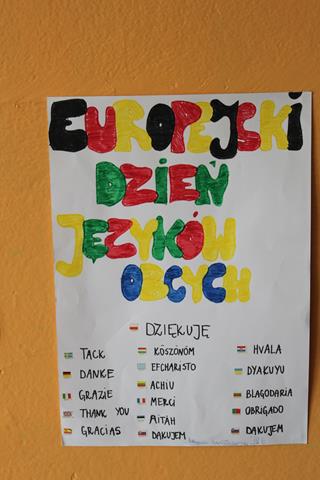 EUROPEJSKI
DZIEŃ
JĘZYKÓW
OBCYCH
DZIĘKUJĘ
TACK
DANKE
GRAZIE
THANK YOU
GRACIAS
KÖSZÖNÖM
EFCHARISTO
ACHIU
MERCI
AITÄH
DAKUJEM
HVALA
DYAKUYU
BLAGODARIA
OBRIGADO
DAKUJEM